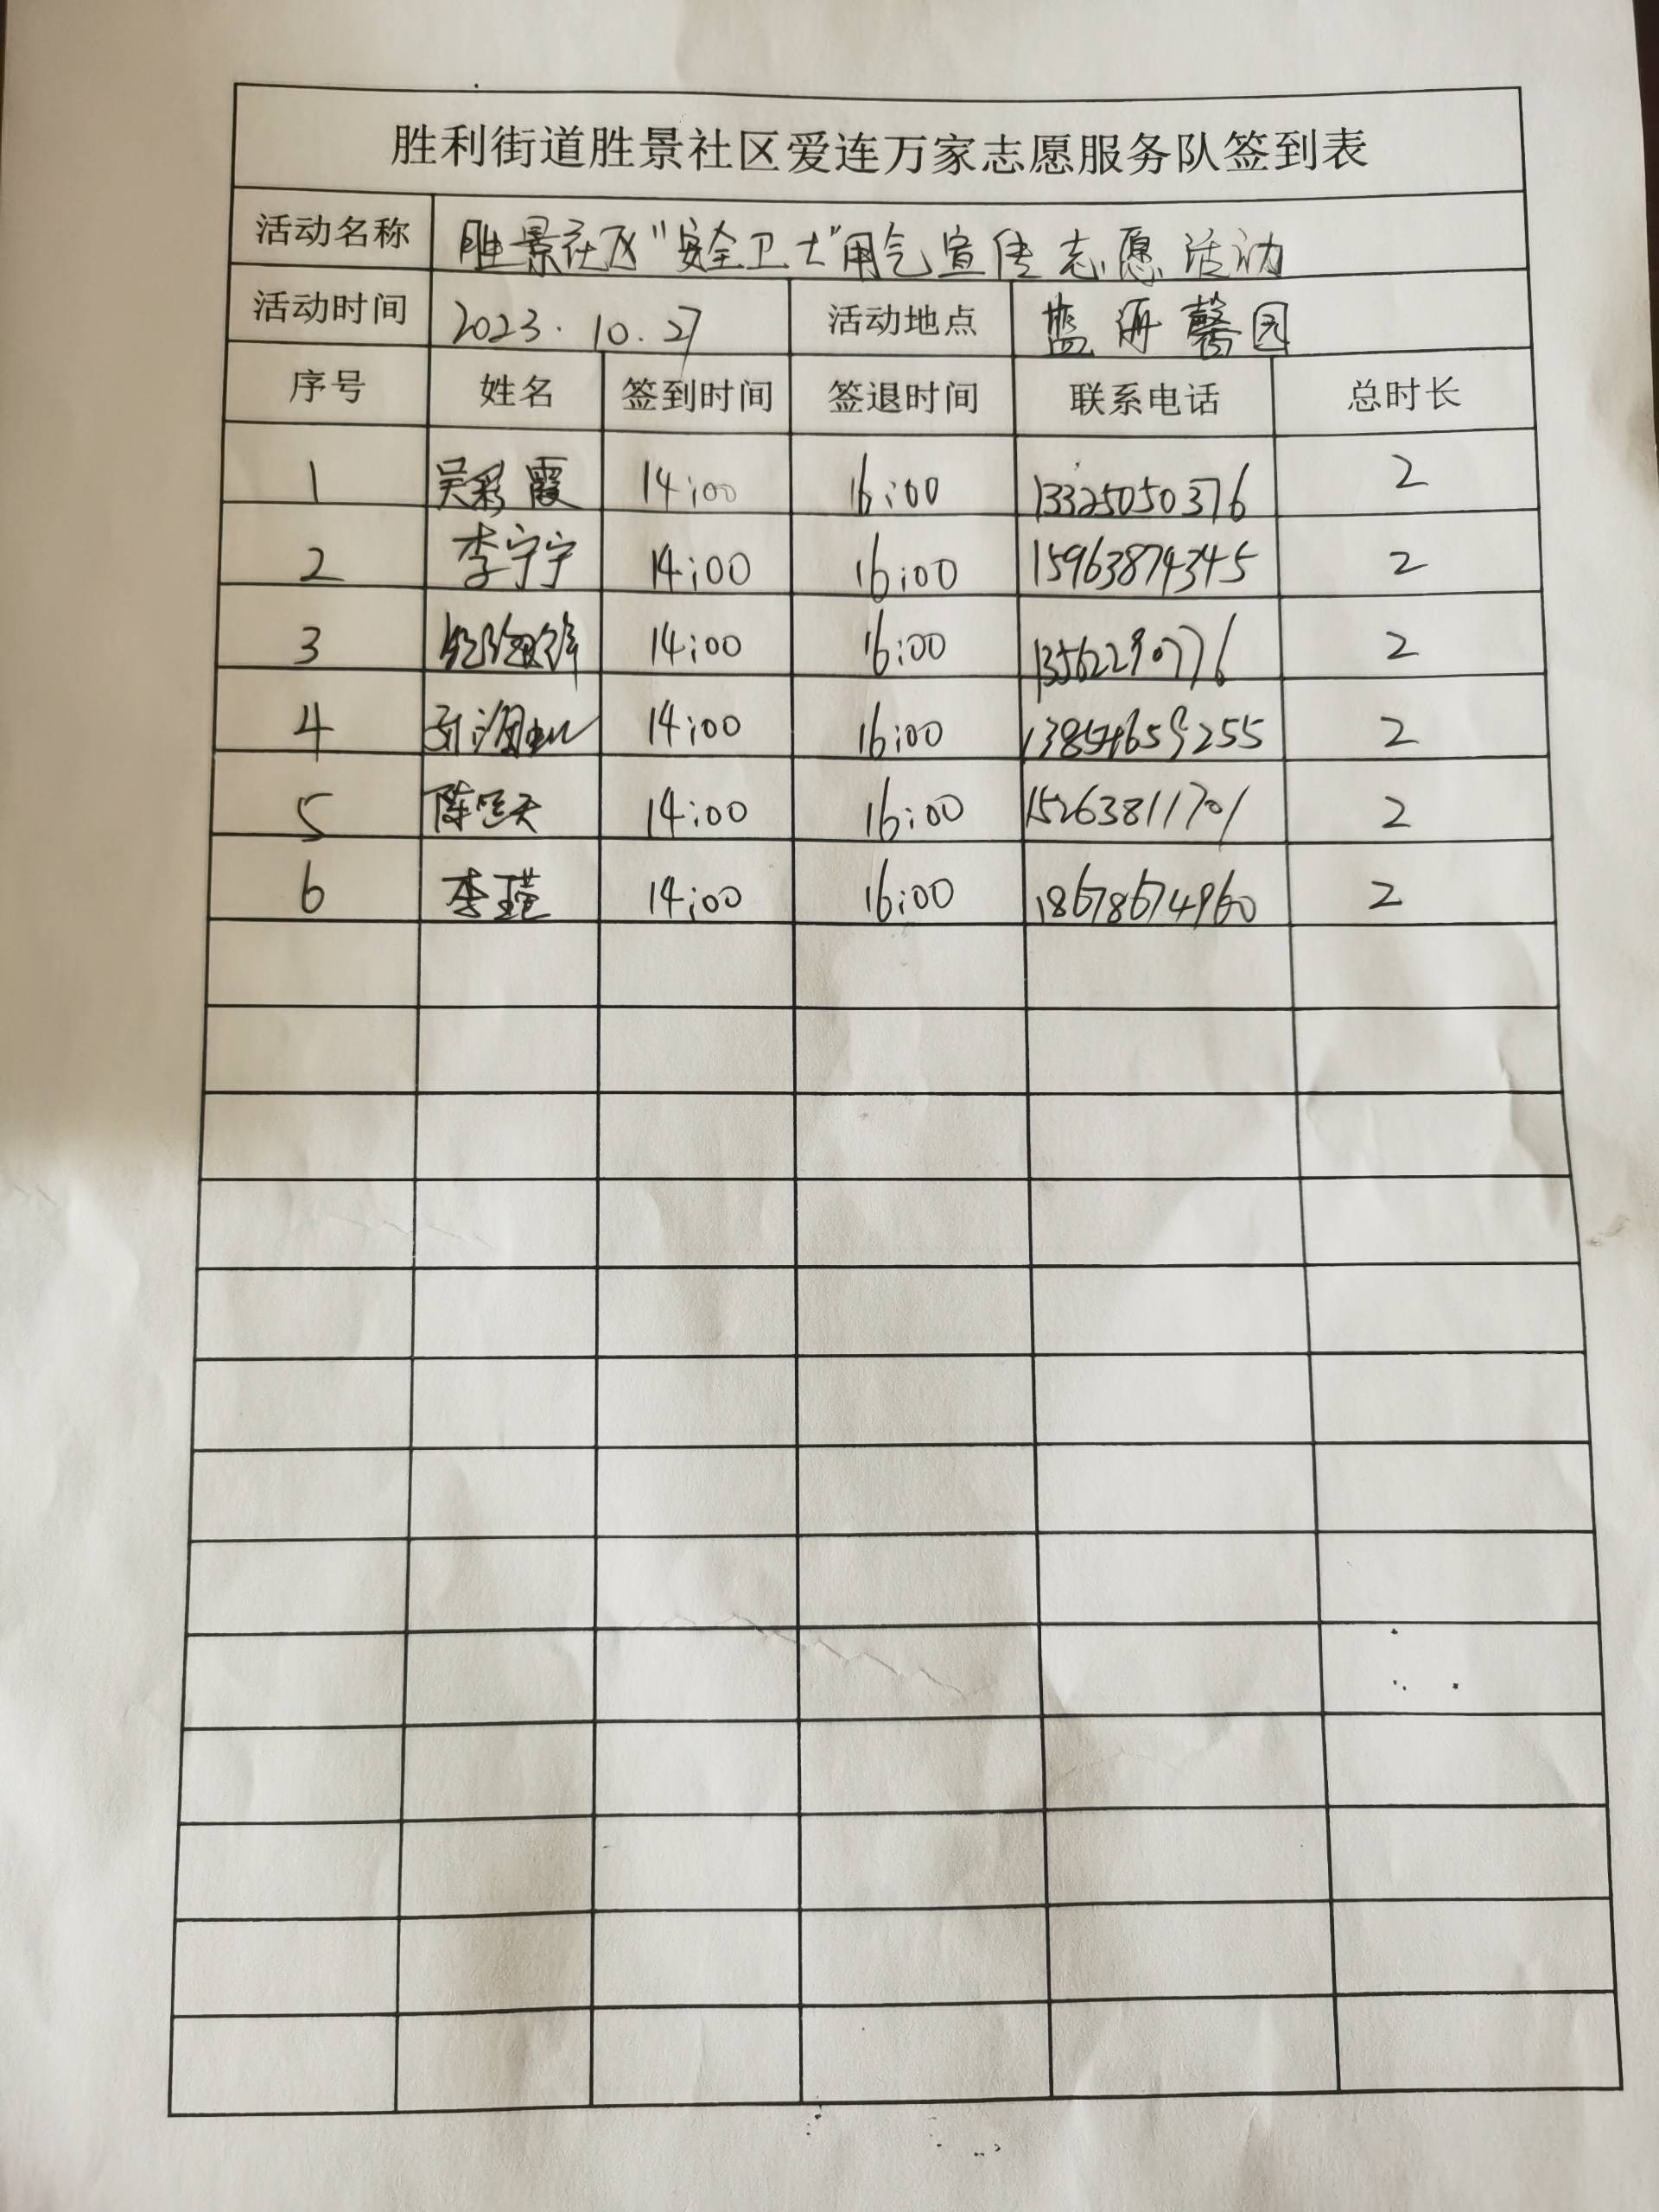 胜利街道胜景社区爱连万家志愿服务队签到表
活动名称 胜景社区"安全卫士"用气宣传志愿活动
活动时间 2023.10.27 活动地点 蓝海馨园
序号 姓名 签到时间 签退时间 联系电话 总时长
1 吴彩霞 14:00 16:00 13325050376 2
2 李宁宁 14:00 16:00 15963874345 2
3 14:00 16:00 2
4 14:00 16:00 2
5 14:00 16:00 15263811701 2
6 李瑾 14:00 16:00 18678674960 2